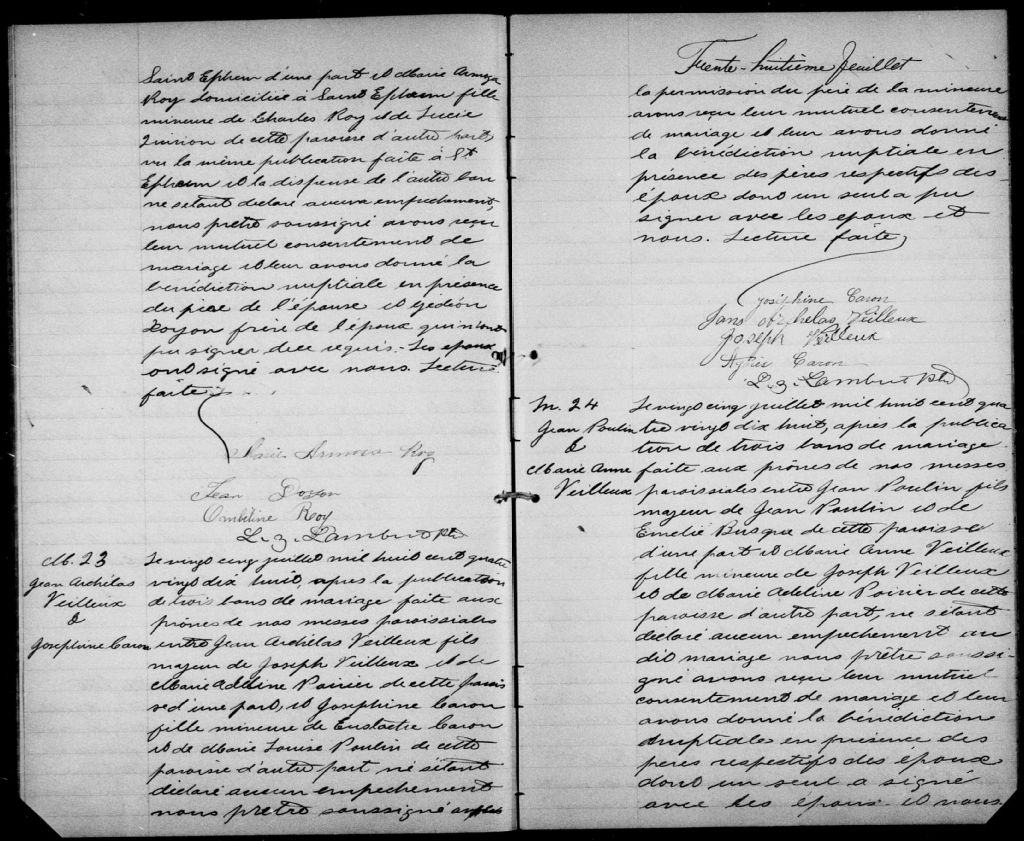 Saint Ephem d'une part et Marie Armoza
Roy domiciliée à Saint Ephrem fille
mineure de Charles Roy et de Lucie
Quirion de cette paroisse d'autre part,
vu la même publication faite à St
Ephrem et la dispense de l'autre ban
ne s'étant déclaré aucun empechement,
nous prêtre soussigné avons reçu
leur mutuel consentement de
mariage et leur avons donné la
bénédiction nuptiale en présence
du père de l'épouse et Gédéon
Doyon frère de l'époux qui n'ont
pu signer de ce requis. Les epoux
ont signé avec nous. Lecture
faite
Marie Armosa Roy
Jean Doyon
Ombéline Roy
L. Z. Lambert Ptre
M. 23
Jean Archélas
Veilleux
&
Josephine Caron
Le vingt cinq juillet mil huit cent quatre
vingt dix huit, après la publication
de trois bans de mariage faite aux
prônes de nos messes paroissiales
entre Jean Archélas Veilleux fils
majeur de Joseph Veilleux et de
Marie Adeline Poirier de cette parois
se d'une part, et Josephine Caron
fille mineure de Eustache Caron
et de Marie Louise Poulin de cette
paroisse d'autre part, ne s'étant
déclaré aucun empechement
nous prêtre soussigné
Trente-huitième feuillet
la permission du père de la mineure
avons reçu leur mutuel consentement
de mariage et leur avons donné
la bénédiction nuptiale en
présence des pères respectifs des
époux dont un seul a pu
signer avec les epoux et
nous. Lecture faite
Joséphine Caron
Jans Archelas Veilleux
Joseph Veilleux
Caron
L. Z. Lambert Ptre
M. 24
Jean Poulin
&
Marie Anne
Veilleux
Le vingt cinq juillet mil huit cent qua
tre vingt dix huit, après la publica
tion de trois bans de mariage
faite aux prônes de nos messes
paroissiales entre Jean Poulin fils
majeur de Jean Poulin et de
Emelie Busque de cette paroisse
d'une part et Marie Anne Veilleux
fille mineure de Joseph Veilleux
et de Marie Adeline Poirier de cette
paroisse d'autre part, ne s'étant
déclaré aucun empechement au
dit mariage nous prêtre soussi-
gné avons reçu leur mutuel
consentement de mariage et leur
avons donné la bénédiction
nuptiale en présence des
pères respectifs des époux
dont un seul a signé
avec les époux et nous.